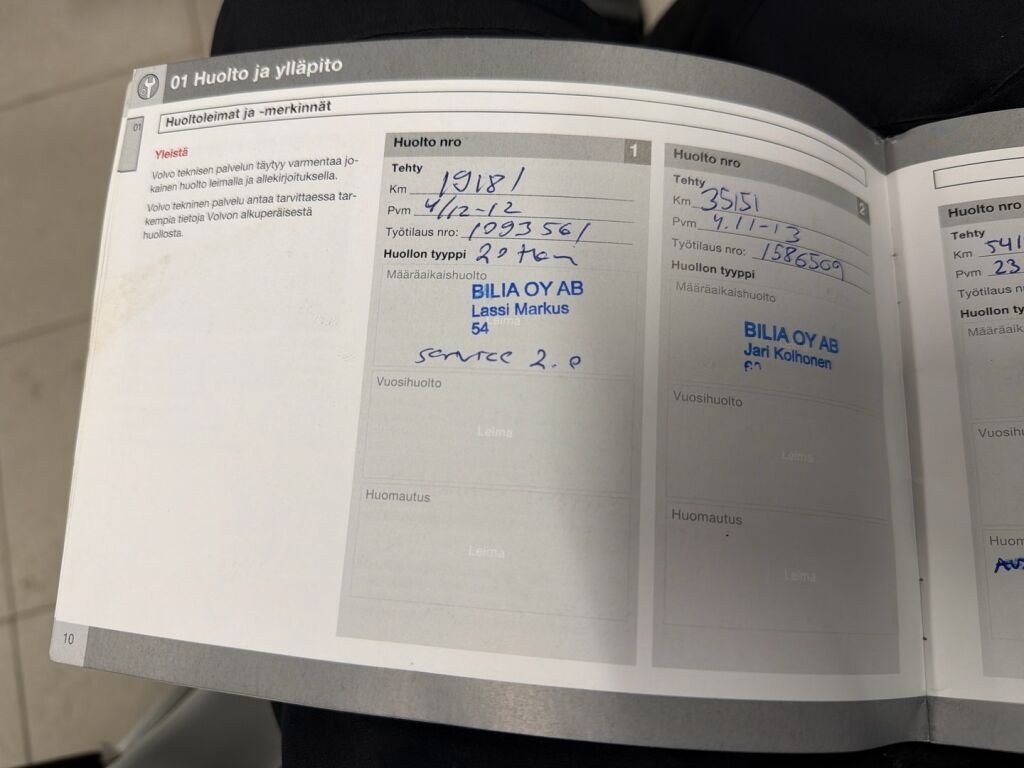 01 Huolto ja ylläpito
01
Huoltoleimat ja -merkinnät
Yleistä
Volvo teknisen palvelun täytyy varmentaa jo-
kainen huolto leimalla ja allekirjoituksella.
Volvo tekninen palvelu antaa tarvittaessa tar-
kempia tietoja Volvon alkuperäisestä
huollosta.
Huolto nro 1
Tehty
Km 19181
Pvm 4/12-12
Työtilaus nro: 1093561
Huollon tyyppi 20
Määräaikaishuolto
BILIA OY AB
Lassi Markus
54
Leima
service 2.0
Vuosihuolto
Leima
Huomautus
Leima
Huolto nro 2
Tehty
Km 35151
Pvm 4.11-13
Työtilaus nro: 1586509
Huollon tyyppi
Määräaikaishuolto
BILIA OY AB
Jari Kolhonen
Vuosihuolto
Leima
Huomautus
Leima
Huolto nro
Tehty
Km 541
Pvm 23
Työtilaus n
Huollon ty
Määräaika
Vuosihu
Huom
10